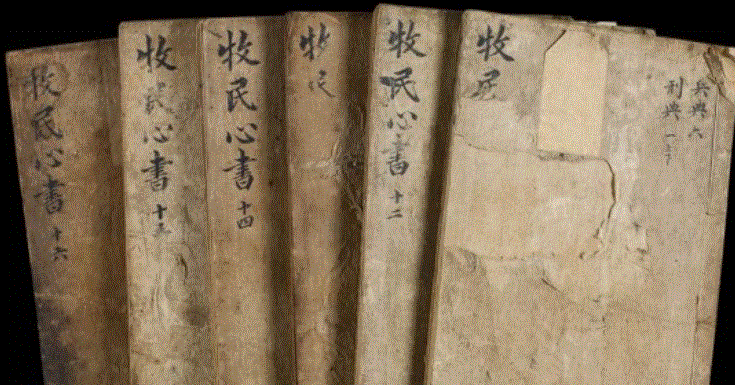 兵典 六
刑典 一
牧民
牧民心書 十二
牧民
牧民心書 十四
牧民心書 十五
牧民心書 十六